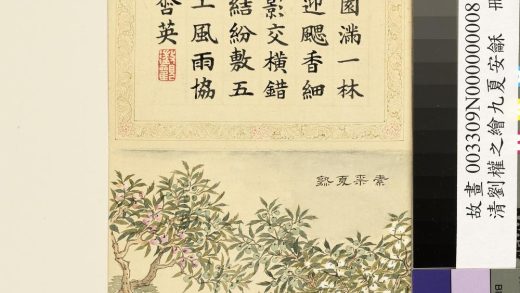 園滿一林
迎颸香細
影交橫錯
結紛敷五
上風雨協
英
素柰夏熟
故畫 003309N000000008
清劉權之繪九夏安龢 冊